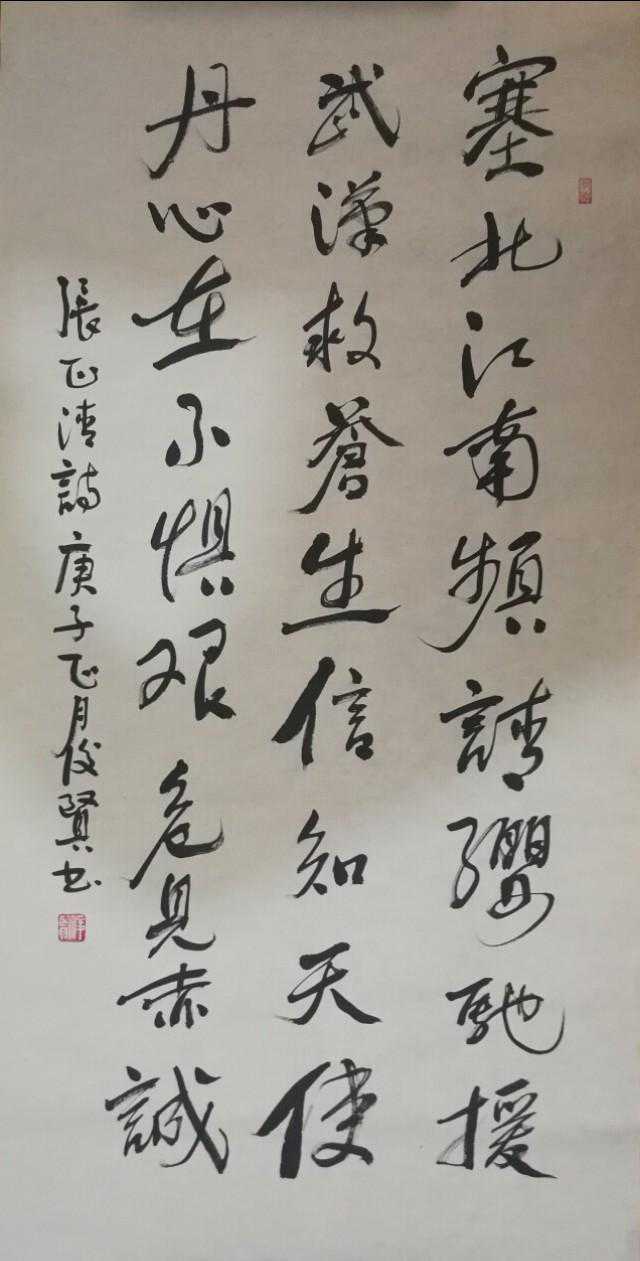 塞北江南頻請纓馳援
武漢救蒼生信知天使
丹心在不懼艰危見赤誠
張正清詩庚子正月俊賢书